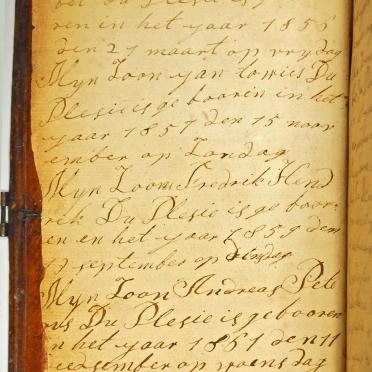 Du Plesie is g
ren in het jaar 1856
den 21 maart op vrydag
Myn Zoon yan Lowies Du
Plesie is ge booren in het
yaar 1857 den 15 noov
ember op Zondag
Myn Zoon Fredrik Hend
rik Du Plesie is ge boor
en en het yaar 1859 den
13 september op Dinsdag
Myn Zoon Andreas Pete
rus Du Plesie is gebooren
in het yaar 1861 den 11
deedsember op woensdag